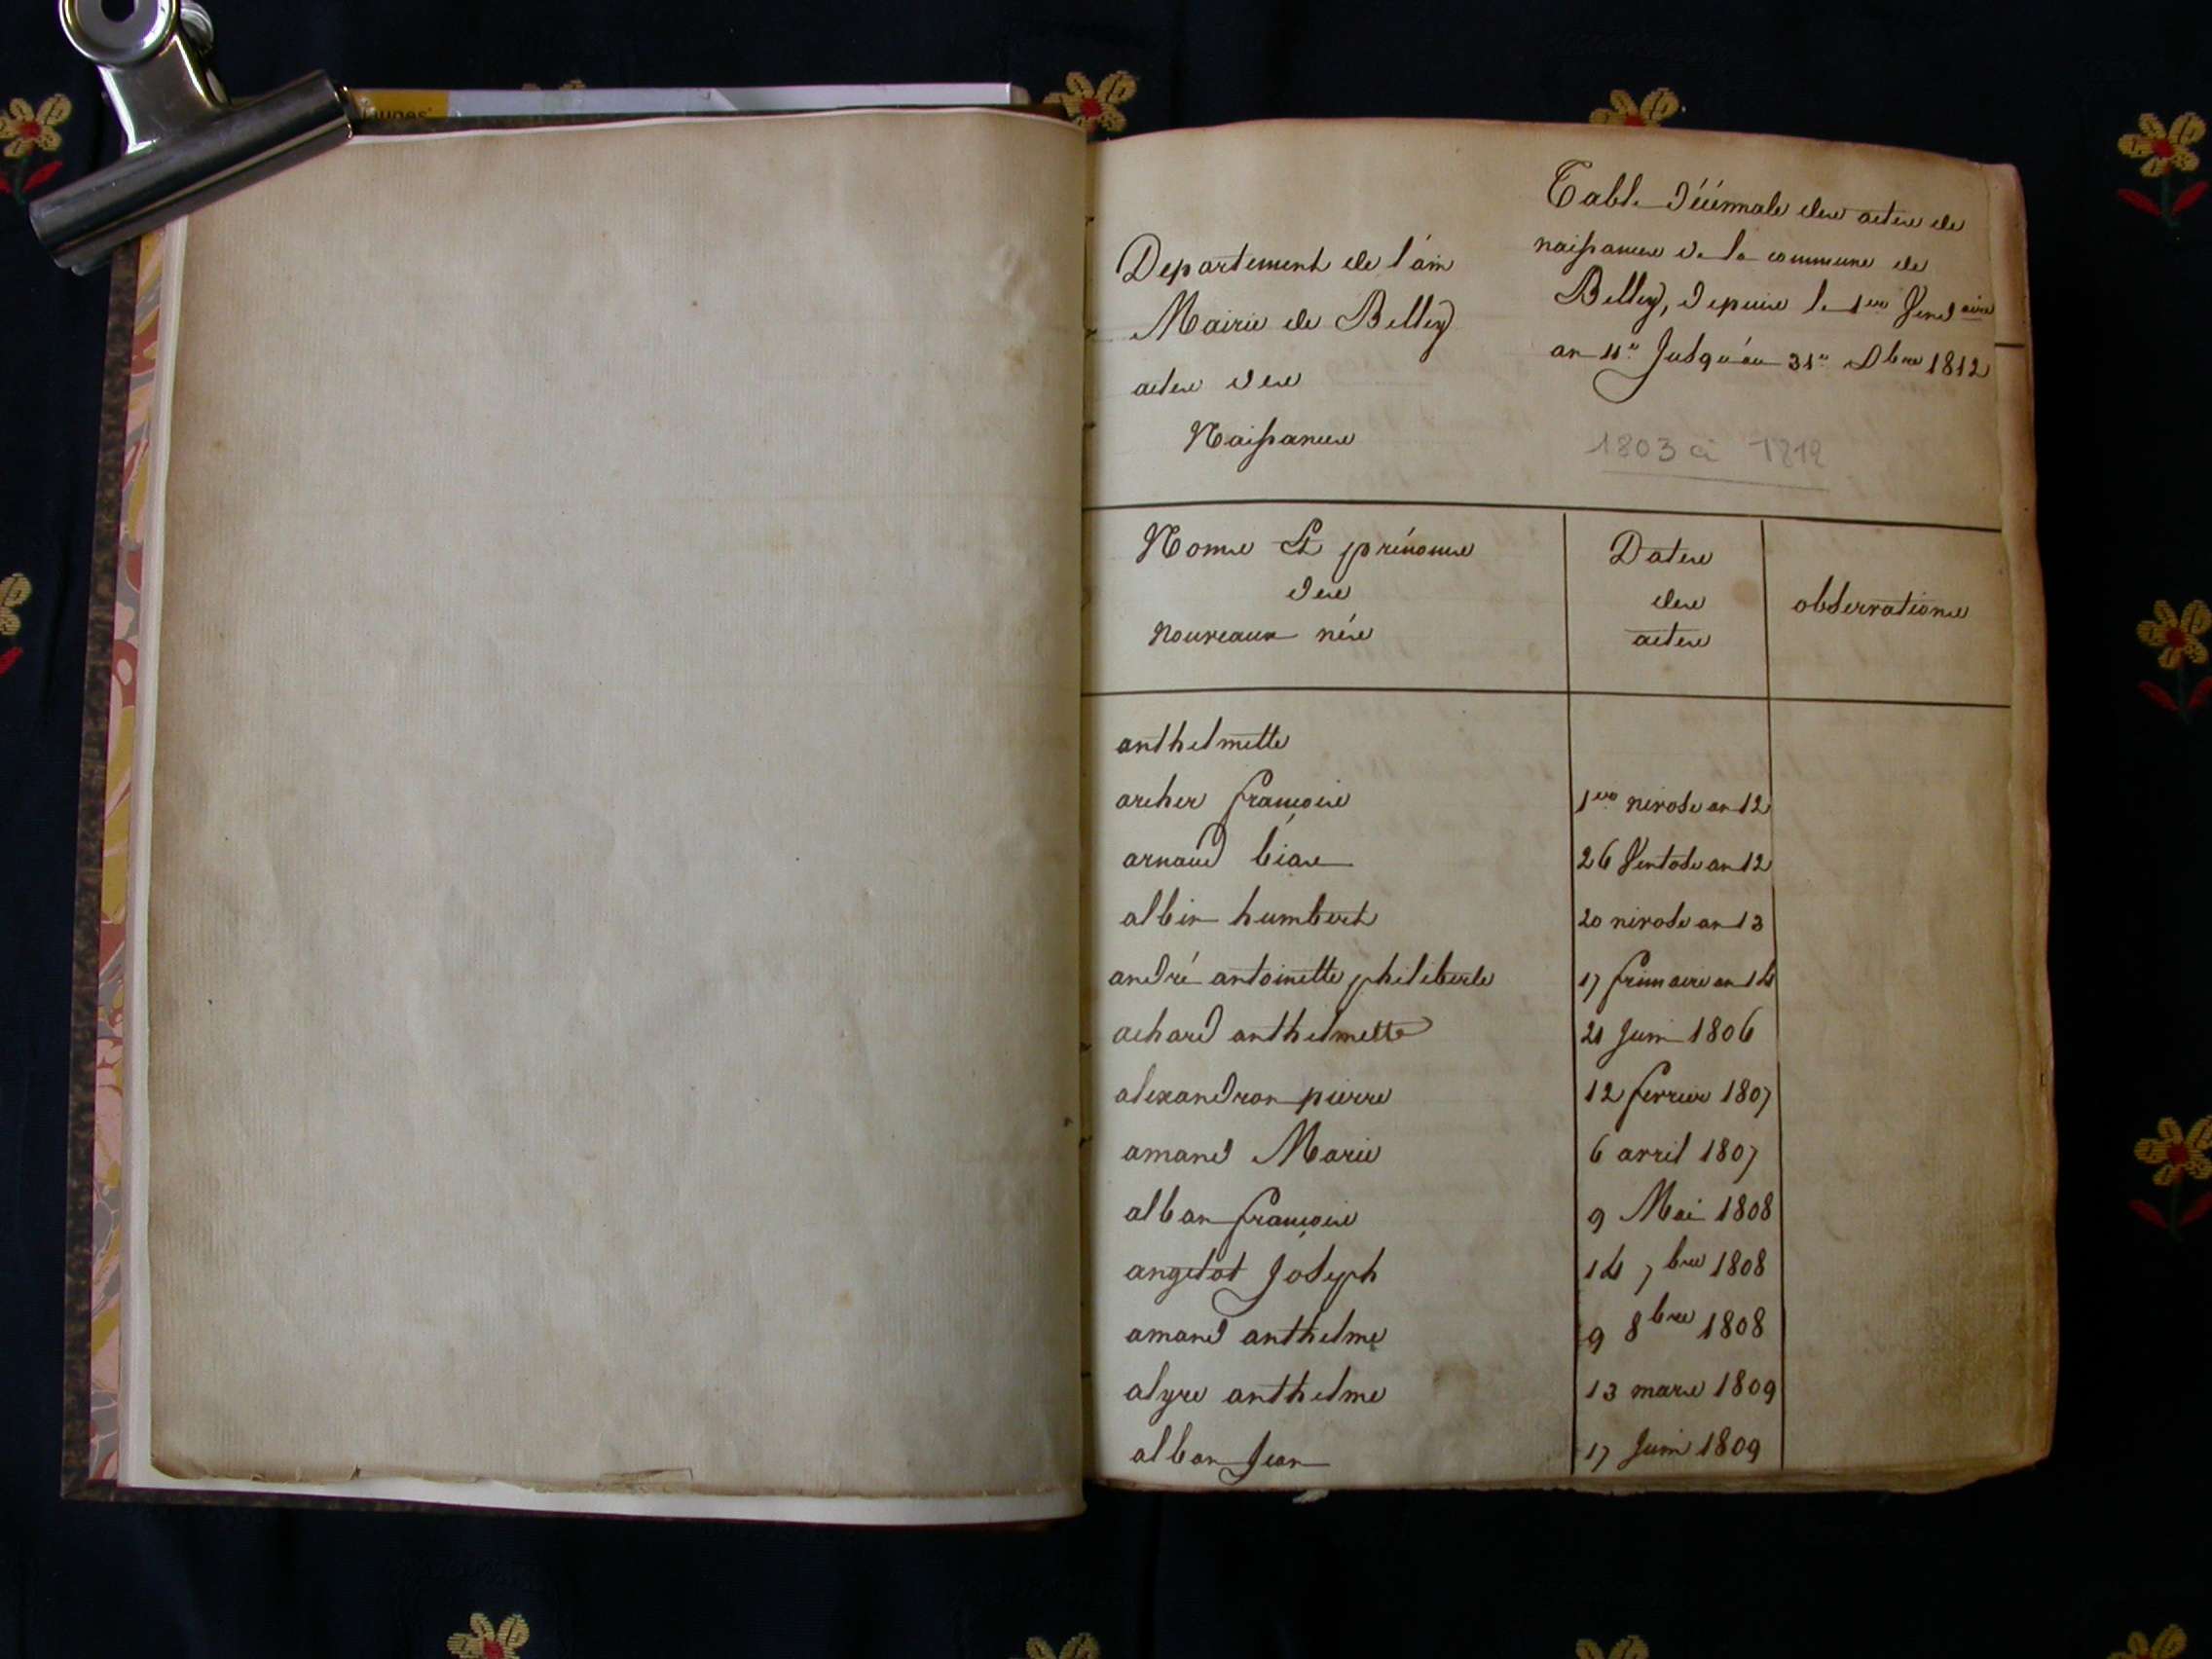 Departement de l'ain
Mairie de Belley
actes des
Naissances
Table Décennale des actes de
naissances de la commune de
Belley, depuis le 1er Vend aire
an 11e Jusqu'au 31e Dbre 1812
1803 à 1812
Noms Et prénoms
des
Nouveaux nés
Dates
des
actes
observations
anthelmette
archer françois 1er nivose an 12
arnaud 26 Ventose an 12
albin humbert 20 nivose an 13
andré antoinette philiberte 17 frimaire an 14
achard anthelmette 21 Juin 1806
alexandron pierre 12 fevrier 1807
amand Marie 6 avril 1807
alban françois 9 Mai 1808
angelot Joseph 14 7bre 1808
amand anthelme 9 8bre 1808
alyre anthelme 13 mars 1809
alban Jean 17 Juin 1809